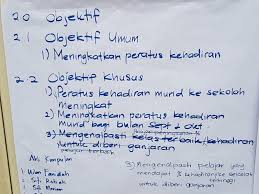 2.0 Objektif
2.1 Objektif Umum
1) Meningkatkan peratus kehadiran
2.2 Objektif Khusus
1) Peratus kehadiran murid ke sekolah
meningkat
2) Meningkatkan peratus kehadiran
murid bagi bulan Sept & Okt
3) Mengenalpasti kelas terbaik kehadiran
untuk diberi ganjaran
Ahli Kumpulan
3) Mengenalpasti pelajar yang
mendapat % kehadiran ke sekolah
untuk diberi ganjaran
1. Wan
2. Siti
3. Siti